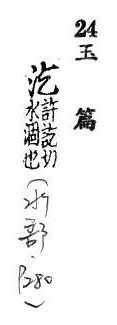 24
玉篇
汔許訖切
水涸也
(水部·P280)